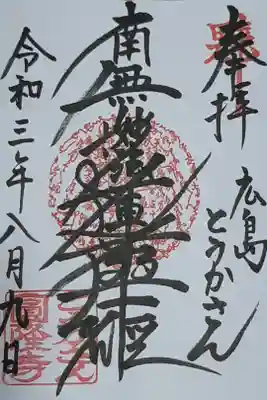 奉拝
広島
とうかさん
南無妙法蓮華経
令和三年八月九日
圓隆寺